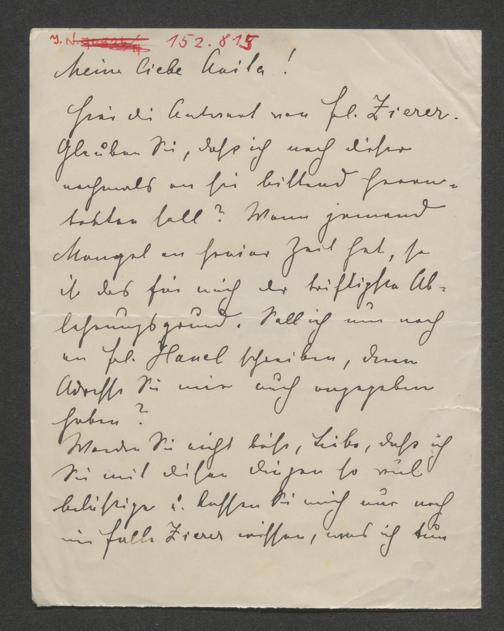 152.815
Meine liebe Anita!
Hier die Antwort von Frl. Zierer.
Glauben Sie, daß ich nach dieser
nochmals an sie bittend heran-
treten soll? Wenn jemand
Mangel an freier Zeit hat, so
ist das für mich der triftigste Ab-
lehnungsgrund. Soll ich nun noch
an Frl. Hanel schreiben, deren
Adresse Sie mir auch angegeben
haben?
Werden Sie nicht böse, Liebe, daß ich
Sie mit diesen Dingen so viel
belästige u. lassen Sie mich nur noch
im Falle Zierer wissen, was ich tun